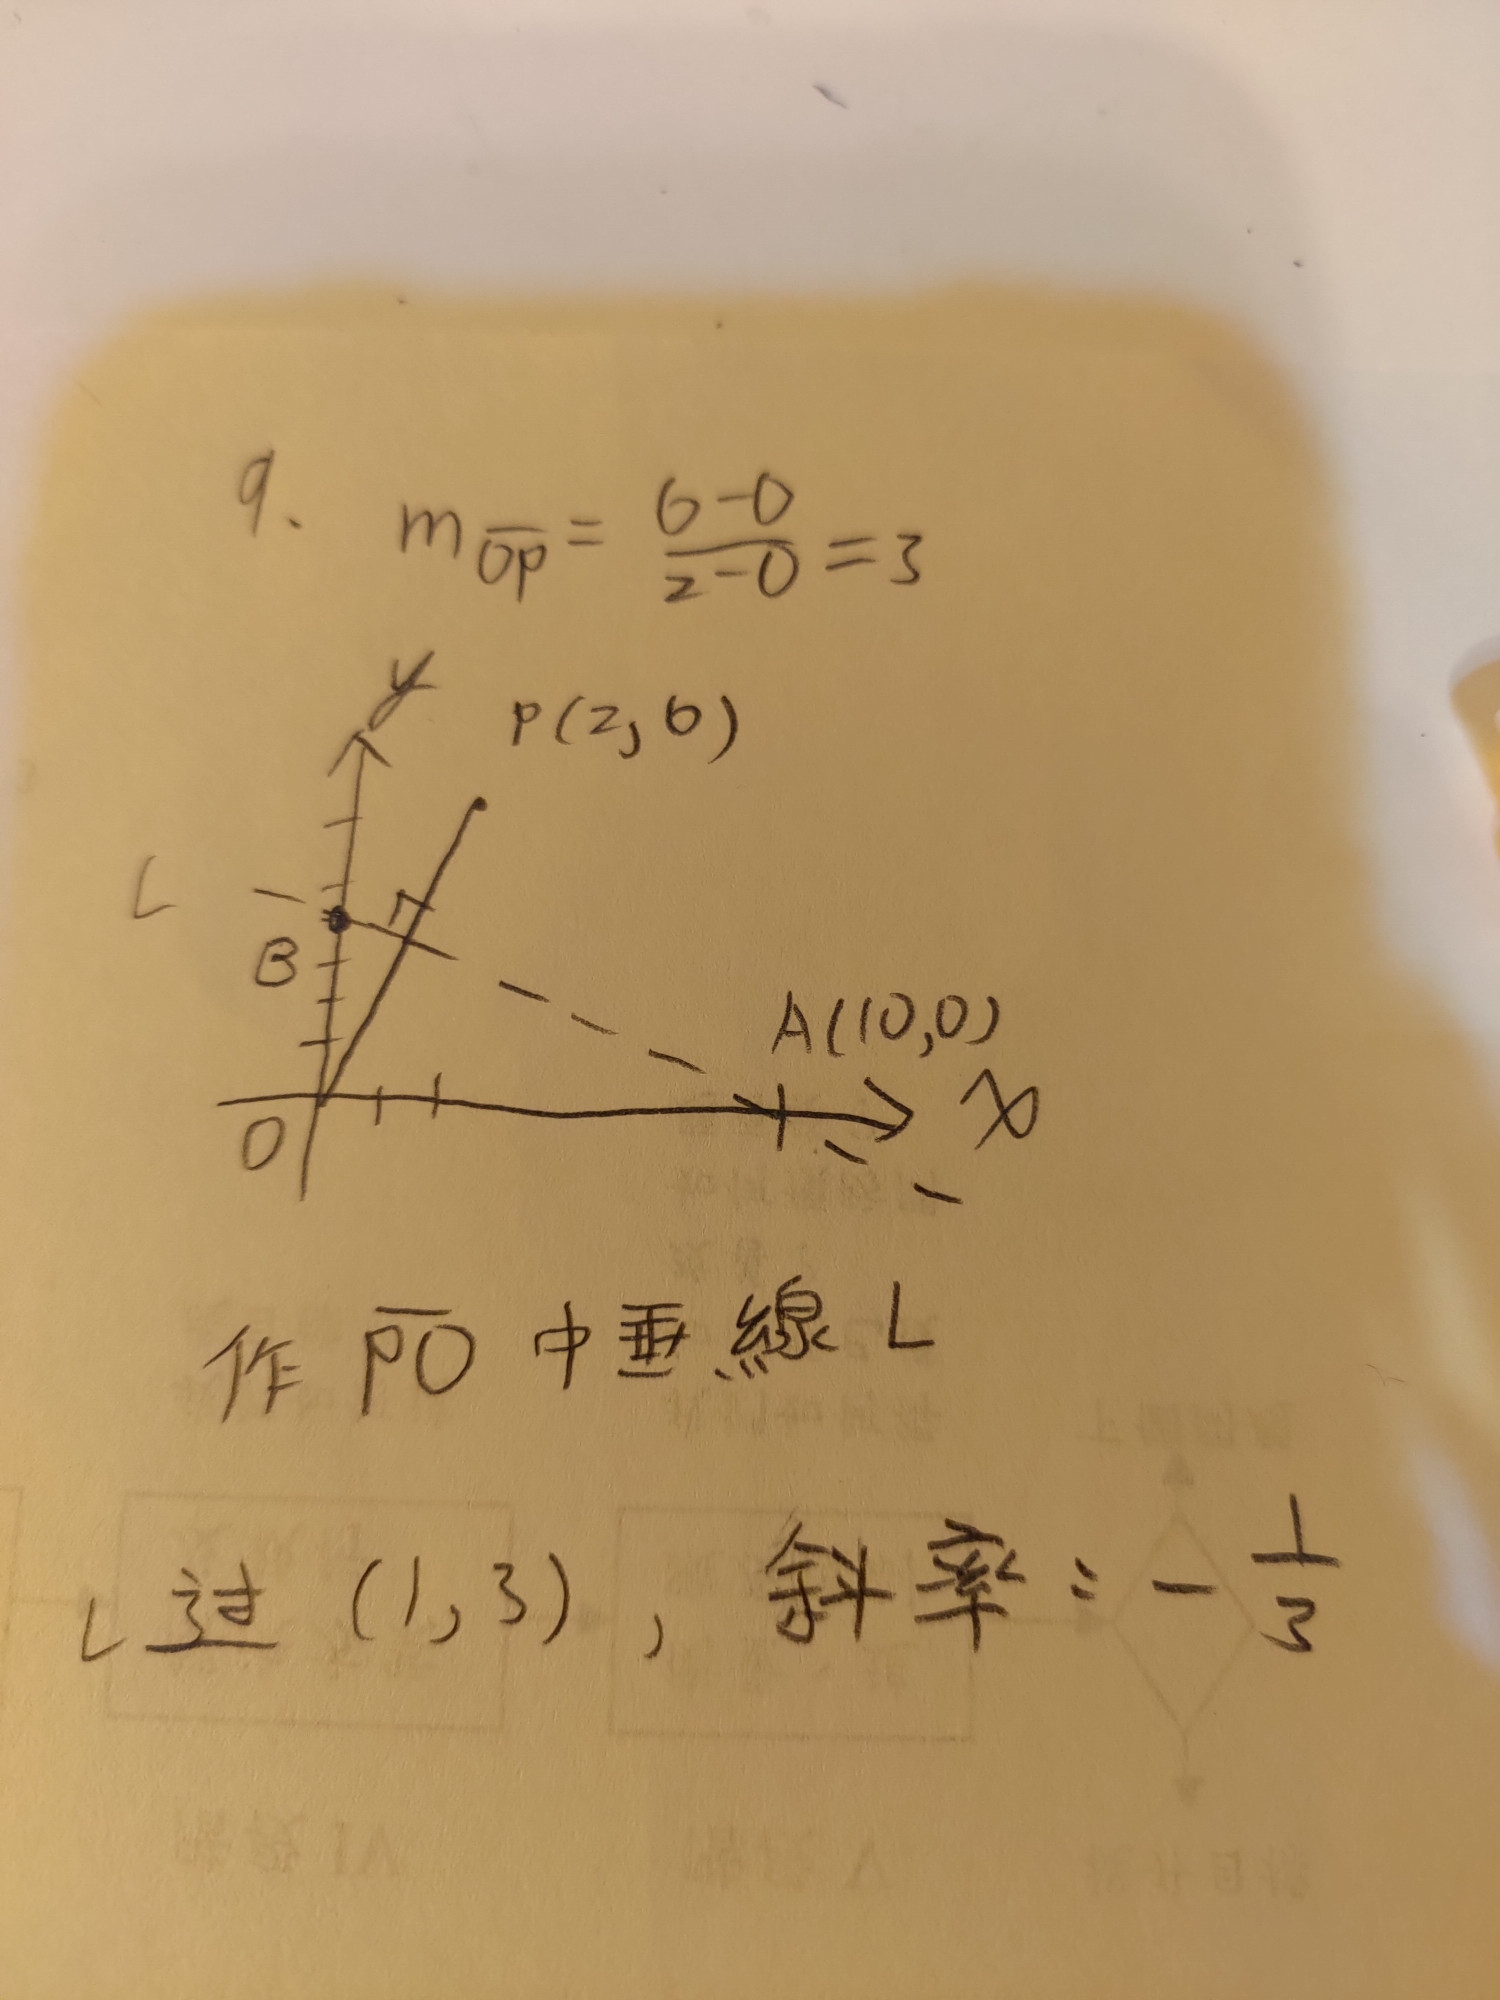 9. m_{\overline{OP}} = \frac{6-0}{2-0} = 3
y
P(2,6)
L
B
A(10,0)
x
O
作 \overline{PO} 中垂線 L
L 过 (1,3), 斜率 = -\frac{1}{3}